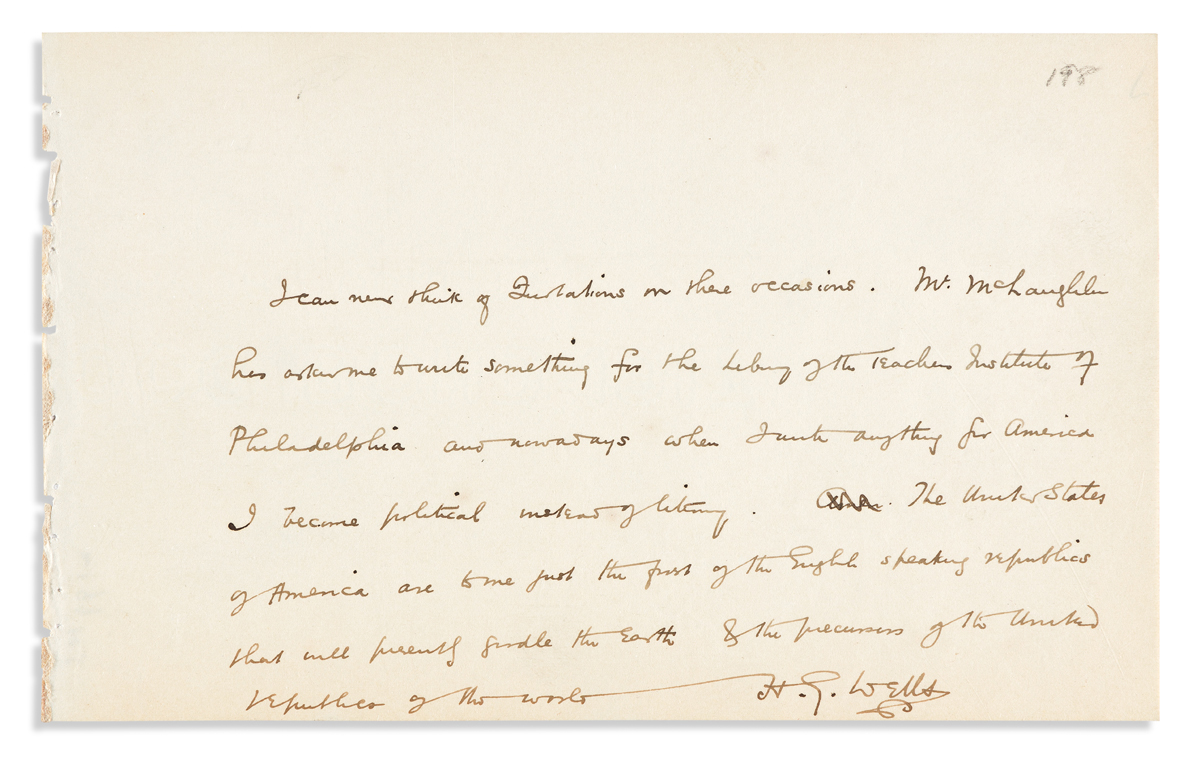 198
I can never think of Quotations on these occasions. Mr. McLaughlin
has asked me to write something for the Library of the Teachers Institute of
Philadelphia and nowadays when I write anything for America
I become political instead of literary. The United States
of America are to me just the first of the English speaking republics
that will presently girdle the Earth & the precursors of the United
republics of the world H. G. Wells